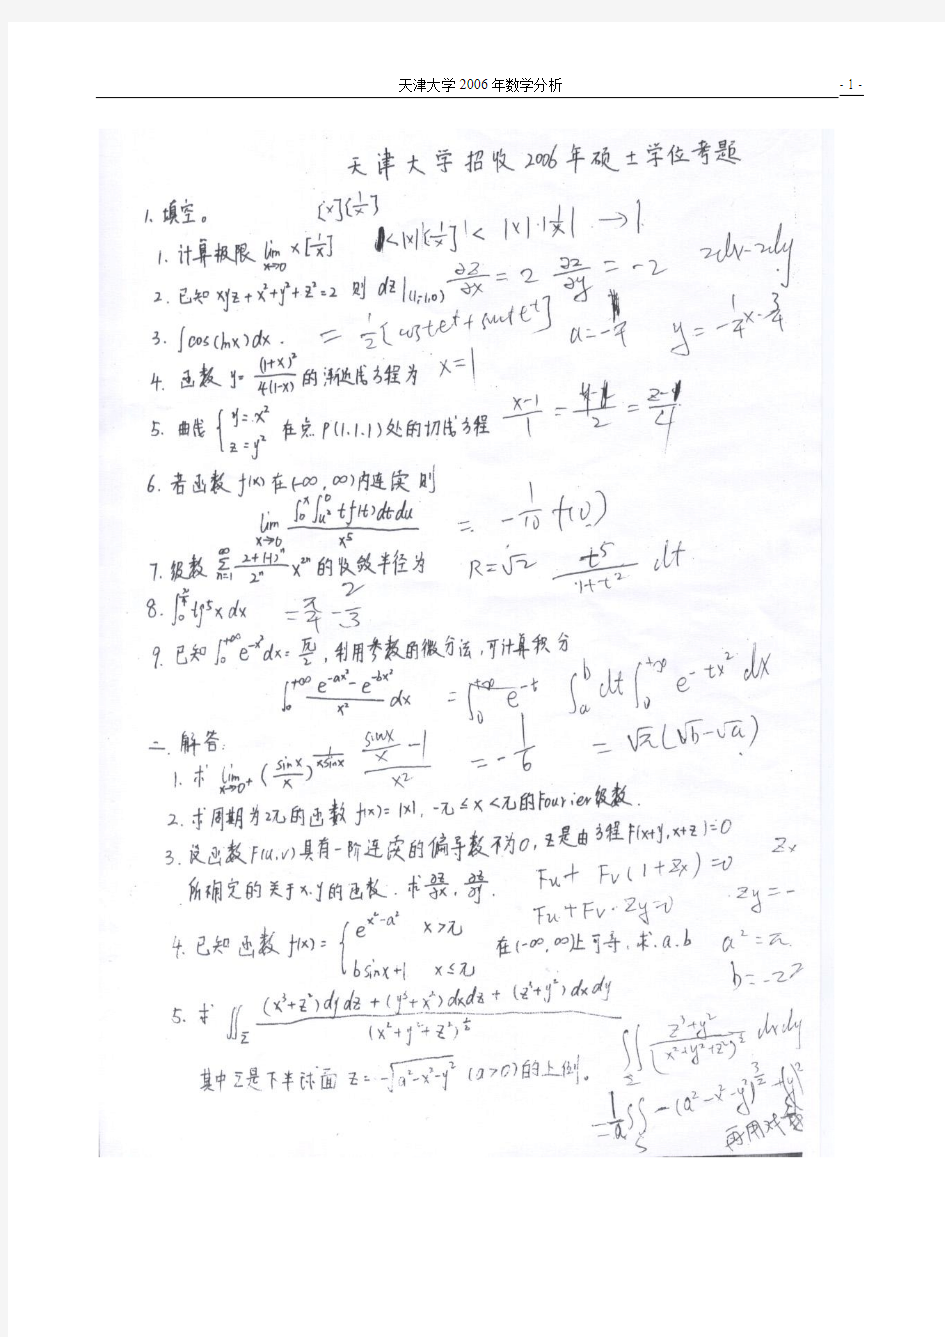 天津大学 2006 年数学分析 - 1 -
天津大学招收2006年硕士学位考题
1.填空。 [x][1/x]
1.计算极限 lim x→0 x[1/x] <|x|[1/x]|<|x|·|1/x| →1
2.已知 xyz+x²+y²+z²=2 则 dz|(1,-1,0) ∂z/∂x=2 ∂z/∂y=-2 2dx-2dy
3. ∫cos(lnx)dx. = 1/2[cost e^t+sint e^t] y=-1/4x-3/4
4. 函数 y=(1+x)²/4(1-x) 的渐近线方程为 x=1
5. 曲线 { y=x² z=y² 在点 P(1.1.1)处的切线方程 (x-1)/1 =
6. 若函数 f(x) 在(-∞,∞)内连续则
lim x→0 ∫₀ˣ∫_{u²}^0 tf(t)dtdu / x⁵ = -1/10 f(0)
7. 级数 ∑_{n=1}^∞ (2+(-1)ⁿ)/2ⁿ x²ⁿ 的收敛半径为 R=√2 t⁵/(1+t²) dt
8. ∫₀^{π/4} tg⁵x dx = π/4 - 2/3
9. 已知 ∫₀^{+∞} e^{-x²}dx=√π/2, 利用参数的微分法,可计算积分
∫₀^{+∞} (e^{-ax²}-e^{-bx²})/x² dx = ∫₀^{+∞} e^{-t} ∫_a^b dt∫₀^{+∞} e^{-tx²} dx
二. 解答: = √π(√b-√a)
1. 求 lim x→0+ (sinx/x)^{1/xsinx} (sinx/x -1)/x² = -1/6
2. 求周期为2π的函数 f(x)=|x|, -π≤x<π的Fourier级数.
3. 设函数F(u,v)具有一阶连续的偏导数不为0, z是由方程F(x+y,x+z)=0
所确定的关于x.y的函数. 求 ∂z/∂x, ∂z/∂y. Fu+Fv(1+Zx)=0 Zx
Fu+Fv·Zy=0 Zy=-
4. 已知函数 f(x)= { e^{x²-a²} x>π bsinx+1 x≤π 在(-∞,∞)上可导, 求.a.b a²=π. b=-2
5. 求 ∬_Σ ((x³+z²)dydz+(y³+x²)dxdz+(z³+y²)dxdy)/(x²+y²+z²)^{1/2}
∬_Σ (z³+y²)/(x²+y²+z²)^{1/2} dxdy
其中Σ是下半球面 z=-√(a²-x²-y²) (a>0)的上侧。
=1/a∬ -(a²-x²-y²)^{3/2}
再用对